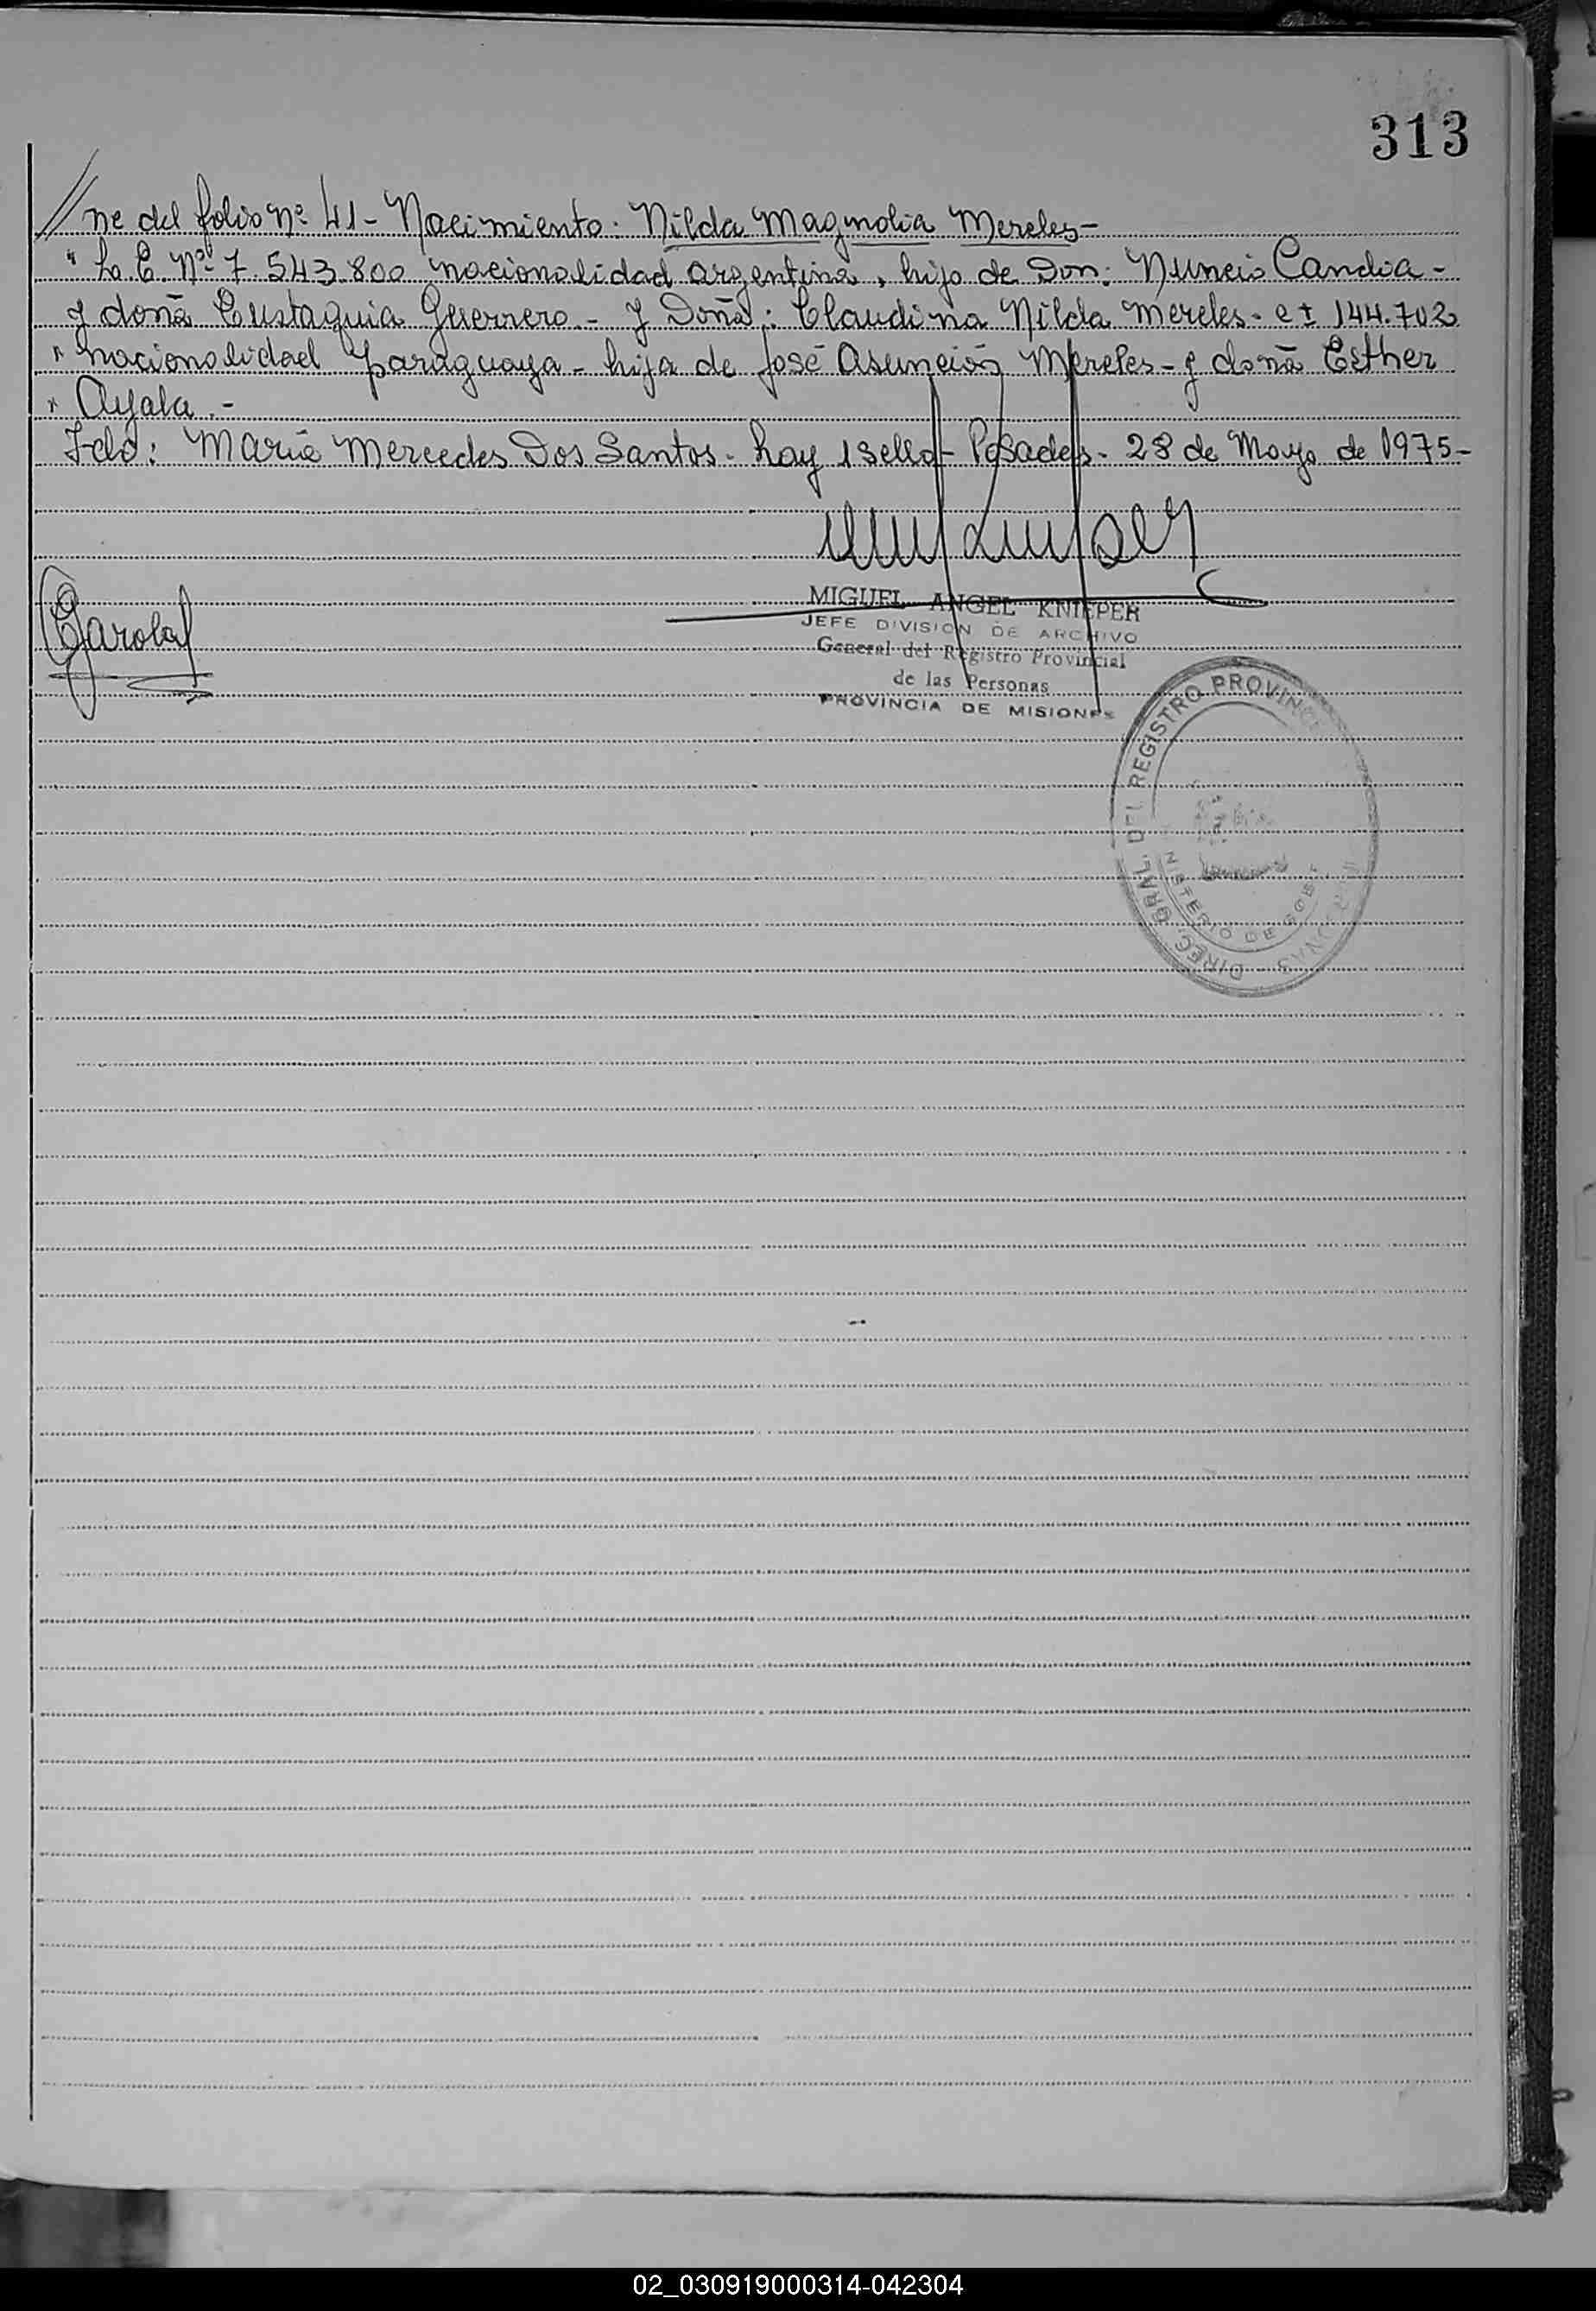 313
//ne del folio nº 41 - Nacimiento: Nilda Magnolia Mereles -
" L. E. Nº 7.543.800 nacionalidad argentina, hijo de Don: Nuncio Candia -
y doña Eustaquia Guerrero. - Y Doña: Claudina Nilda Mereles - 144.702
" nacionalidad paraguaya - hija de José Asunción Mereles - y doña Esther
" Ayala. -
Fdo: María Mercedes Dos Santos - hay 1 sello - Posadas - 28 de Mayo de 1975 -
MIGUEL ANGEL KNIEPER
JEFE DIVISION DE ARCHIVO
General del Registro Provincial
de las Personas
PROVINCIA DE MISIONES
DIREC. GRAL. DEL REGISTRO PROVINC
PERSONAS
NISTERIO DE GOB
02_030919000314-042304